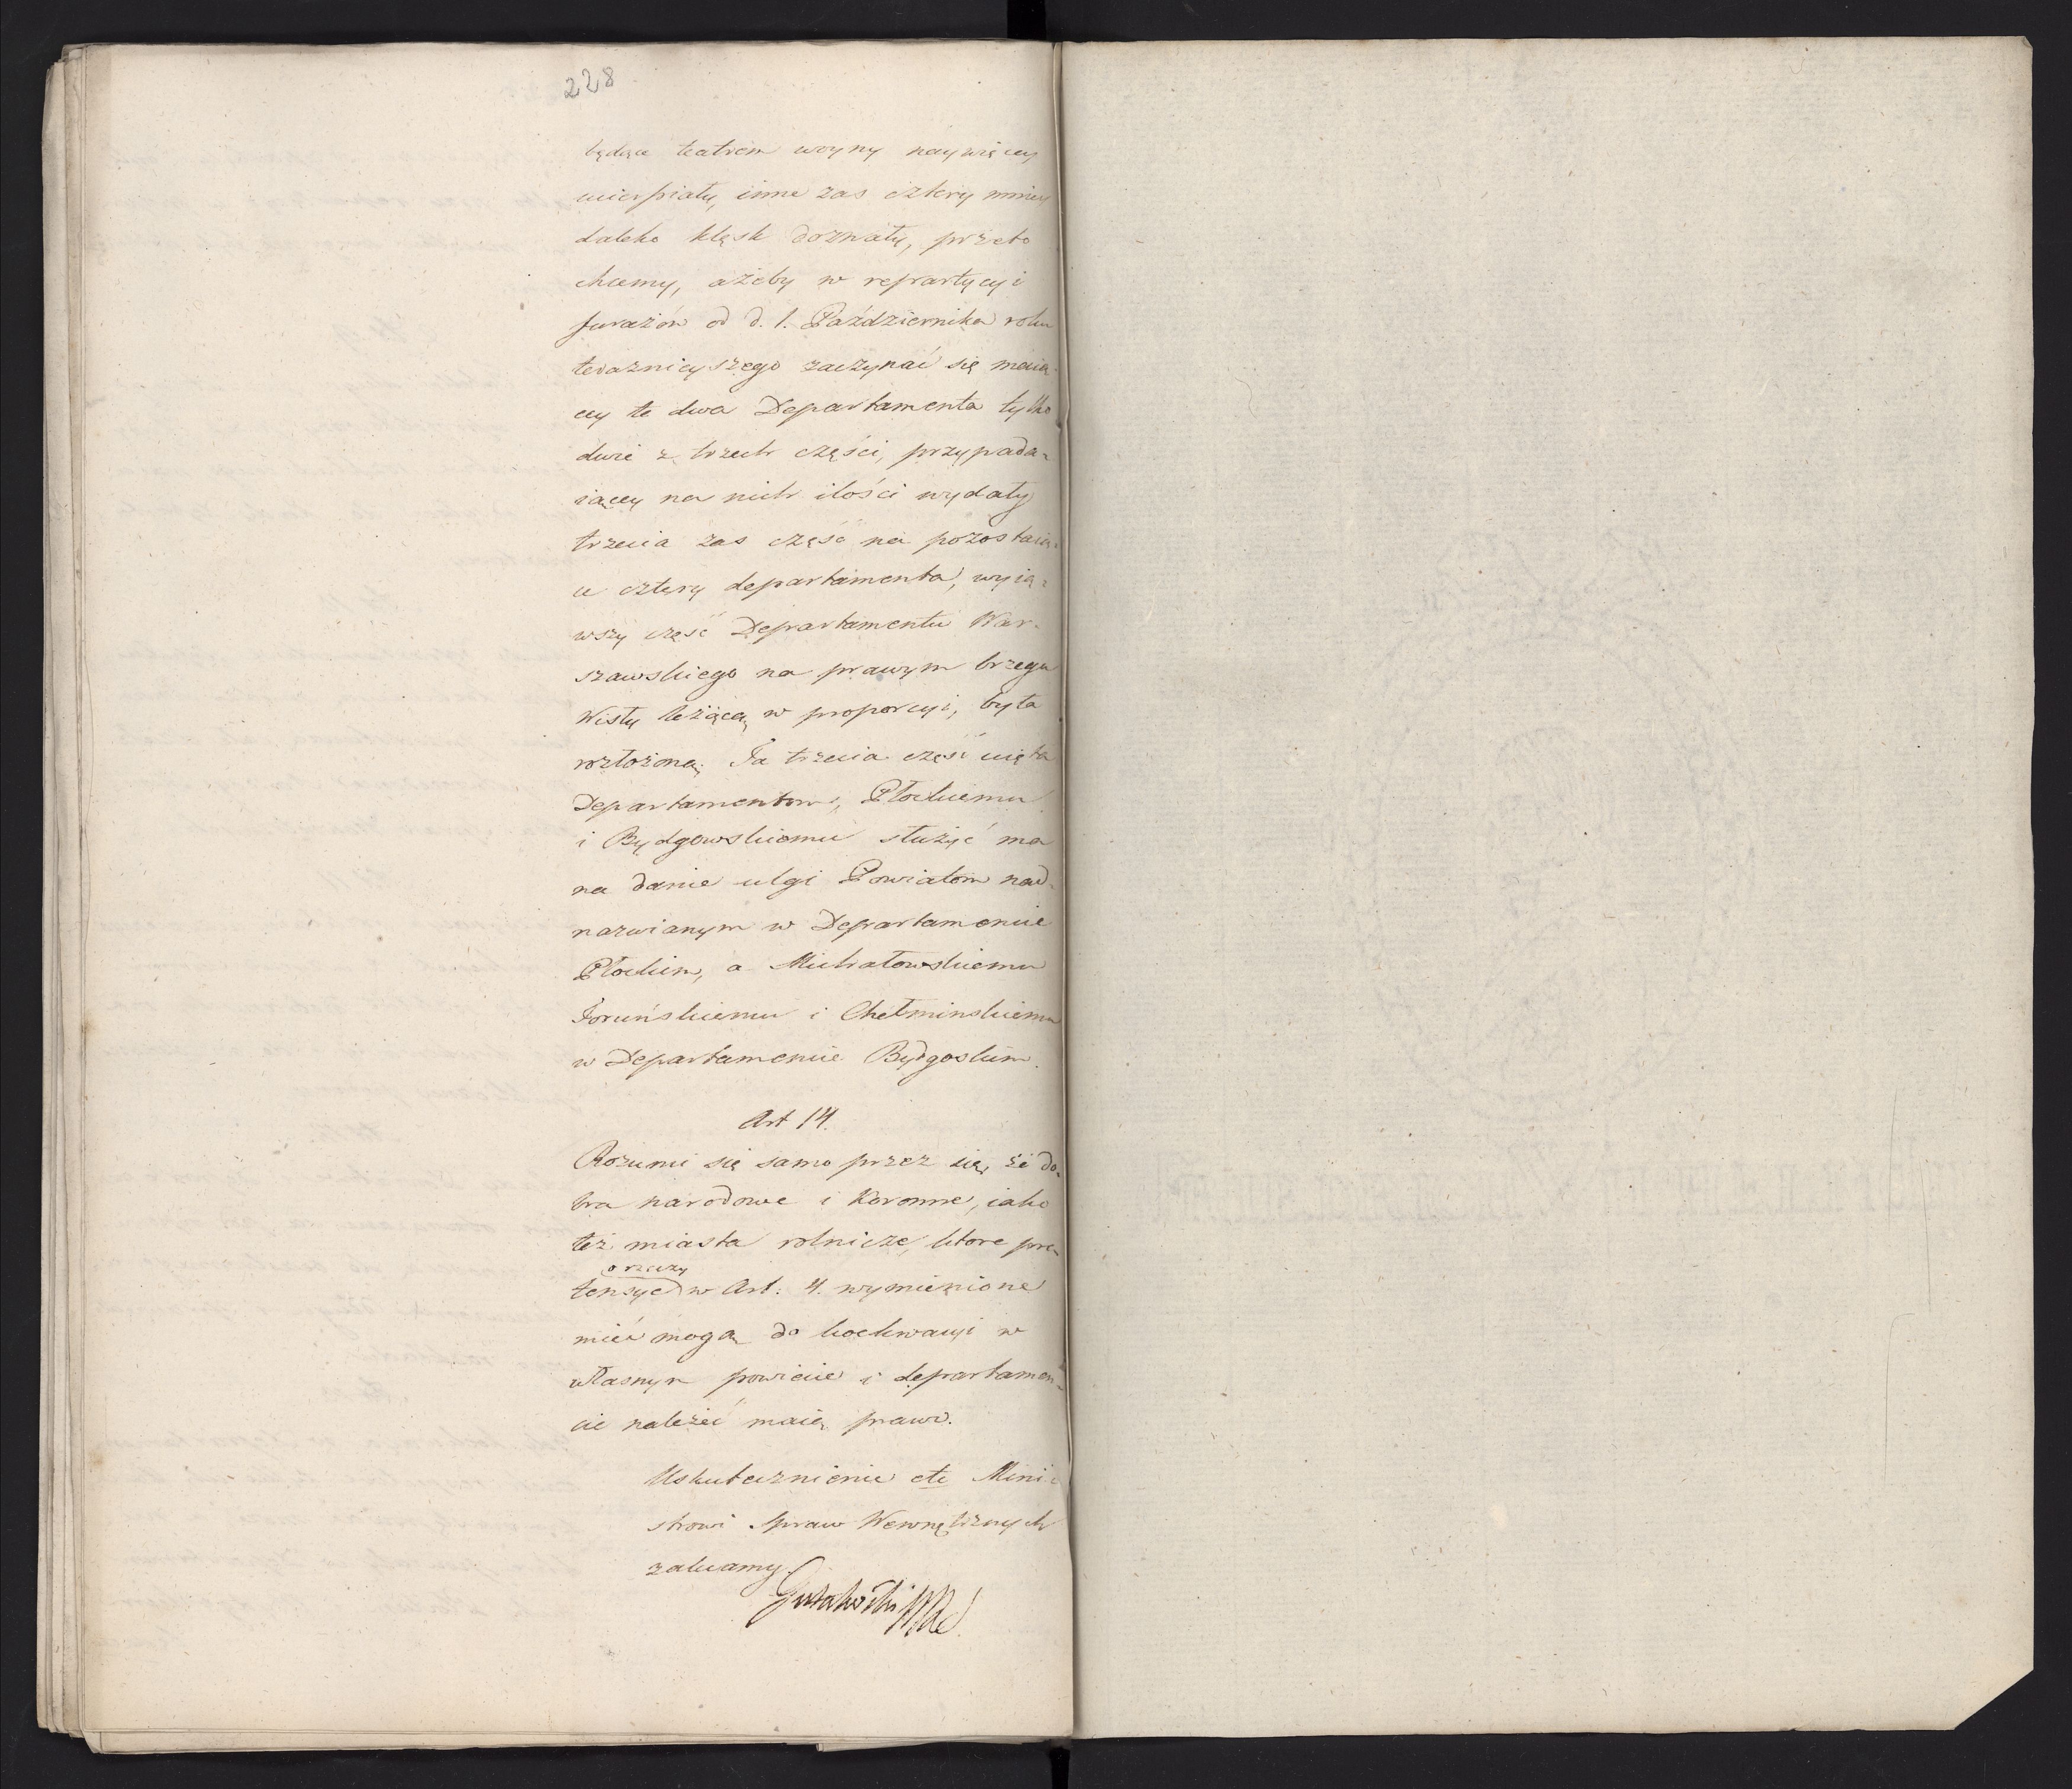 228
będące teatrem woyny naywięcey
ucierpiały, inne zas cztery mniey
daleko klęsk doznały, przeto
chcemy, ażeby w repartycyi
furażów od d. 1. Października roku
teraznieyszego zaczynać się maią-
cey te dwa Departamenta tylko
dwie z trzech części, przypada-
iącey na nich ilości wydały
trzecia zas część na pozostaią-
ce cztery departamenta, wyią-
wszy część Departamentu War-
szawskiego na prawym brzegu
Wisły leżącą w proporcyi, była
rozłożoną. Ta trzecia część uięta
Departamentom, Płockiemu
i Bydgowskiemu służyć ma
na danie ulgi Powiatom nad-
nazwianym w Departamencie
Płockim, a Michałowskiemu
Toruńskiemu i Chełminskiemu
w Departamencie Bydgoskim.
Art 14.
Rozumi się samo przez się, że do-
bra narodowe i Koronne, iako
też miasta rolnicze, ktore pre-
o rzeczy
tensye w Art: 4. wymienione
mieć mogą do bonifikacyi w
własnym powiecie i departamen-
cie należeć maią prawo.
Uskutecznienie etc Mini-
strowi Spraw Wewnętrznych
zalecamy.
Gutakowski PRS